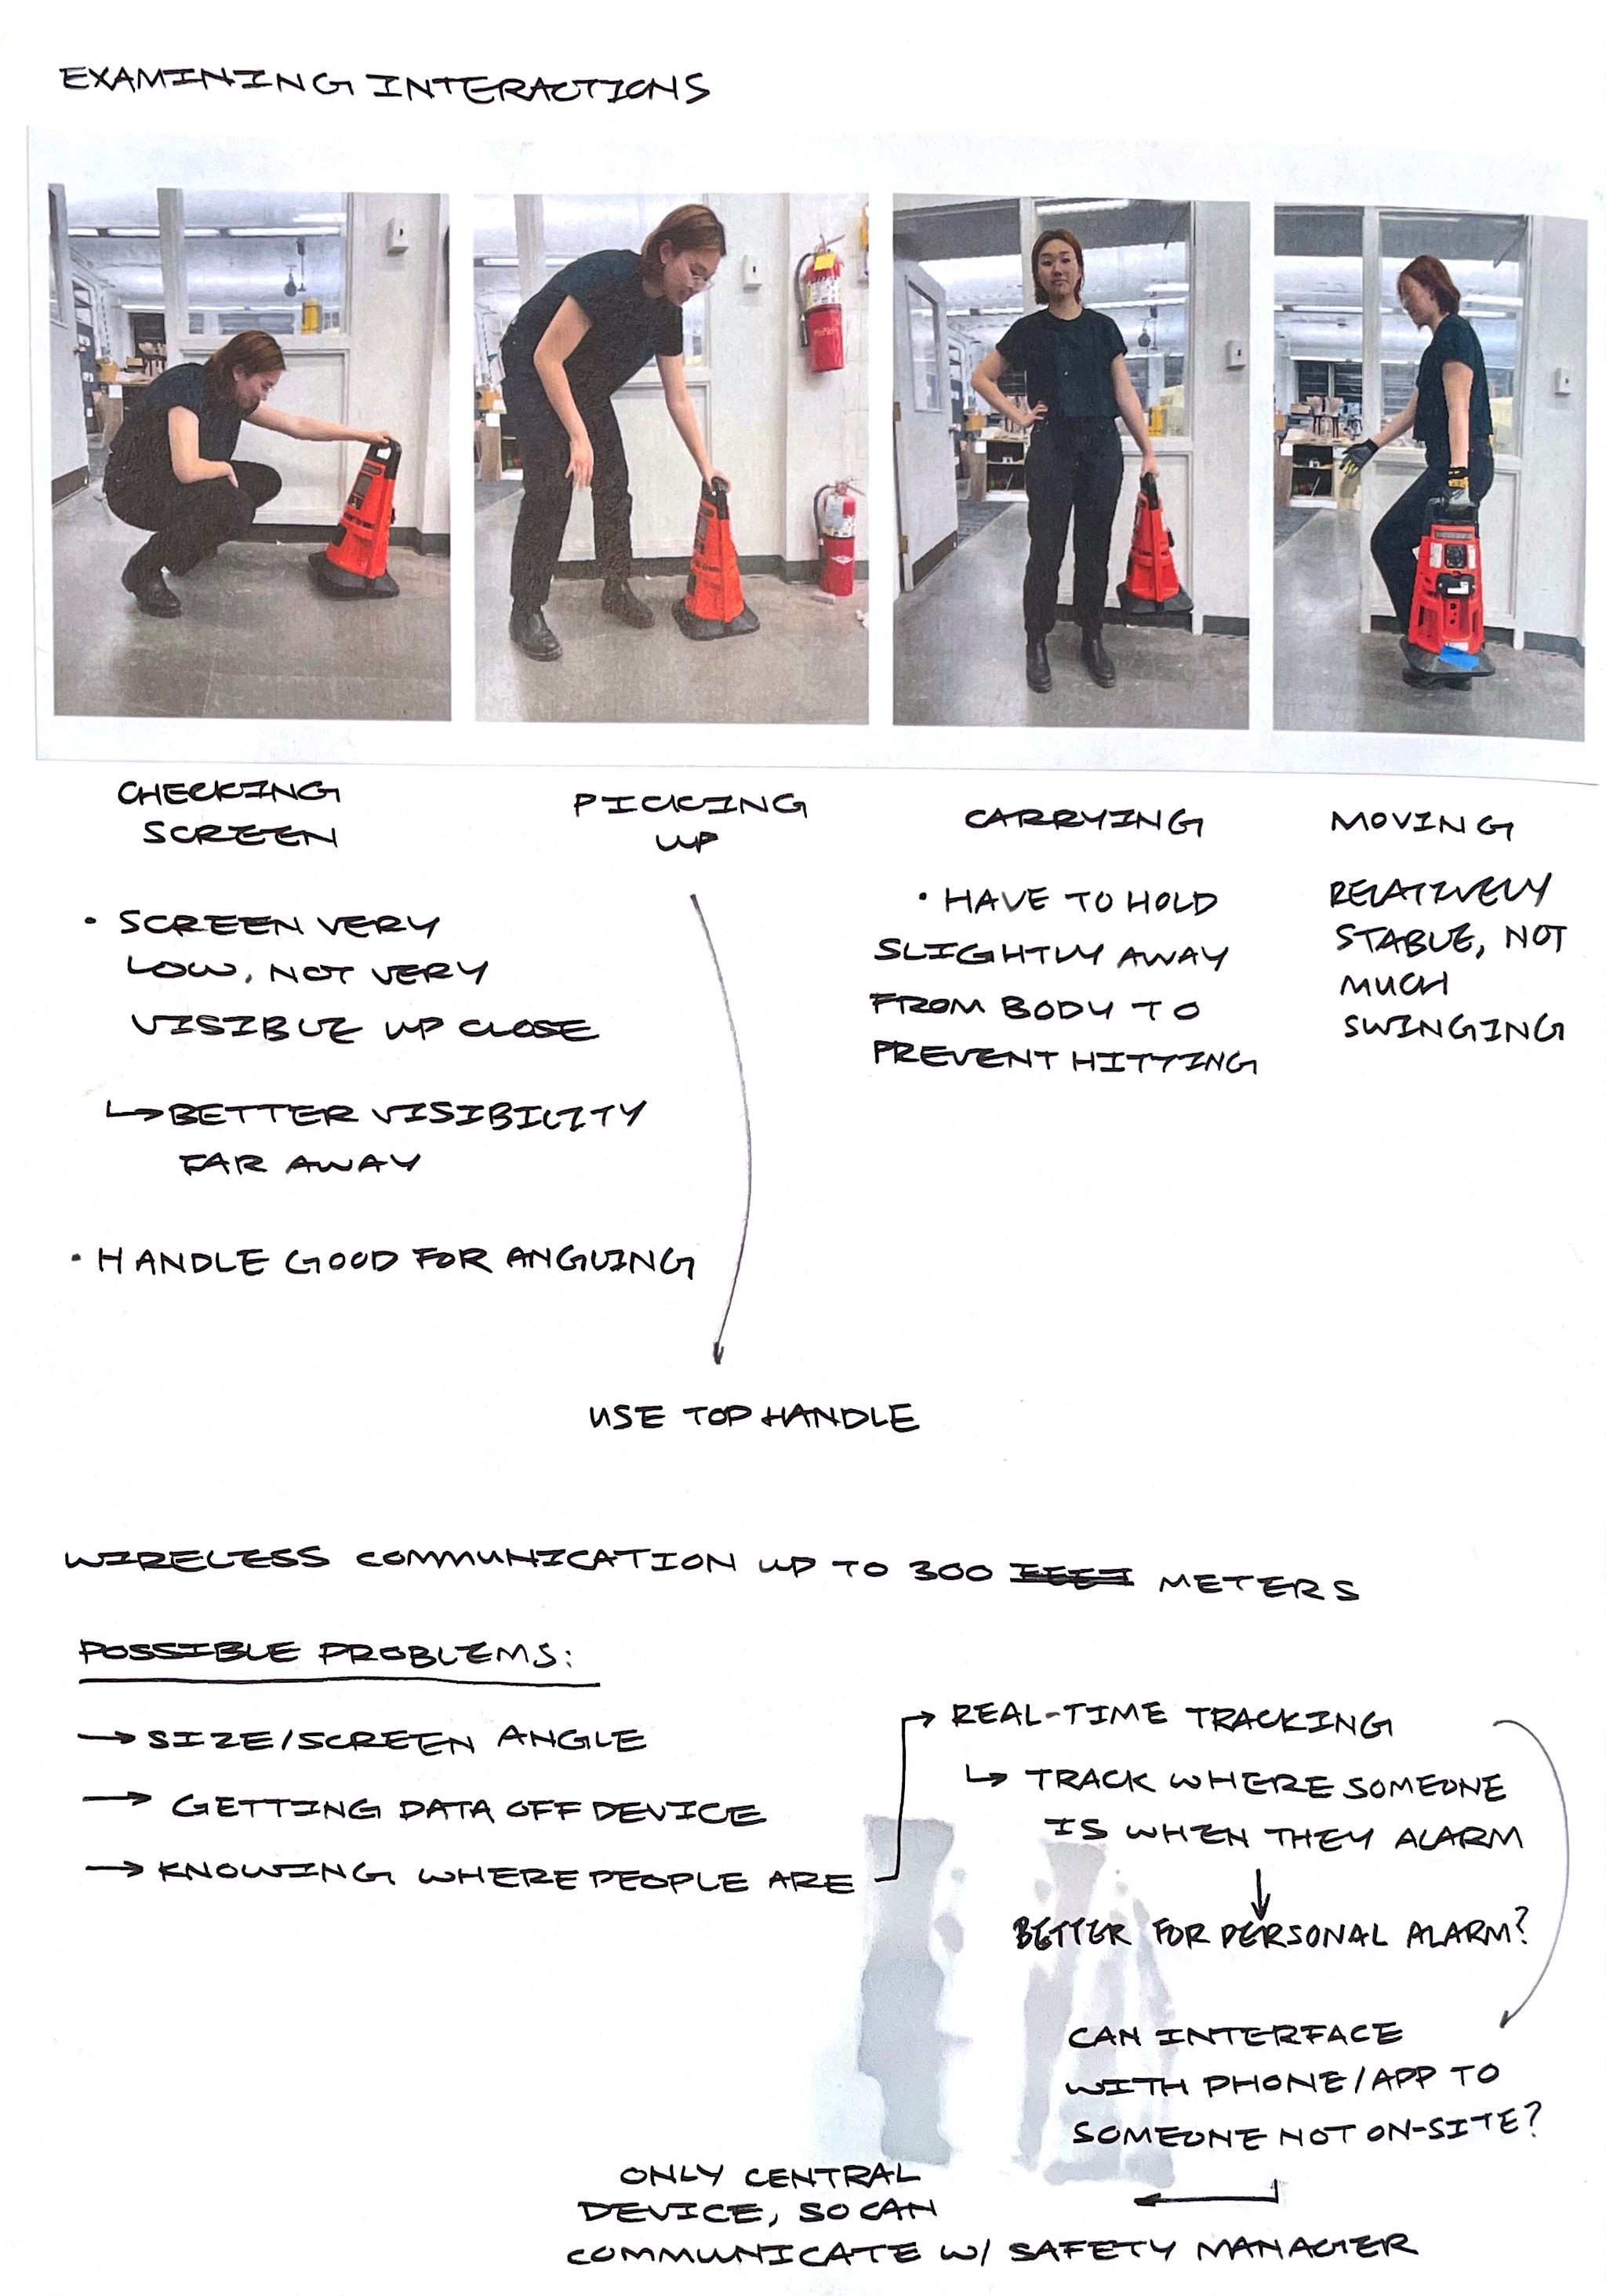 EXAMINING INTERACTIONS
CHECKING
SCREEN
• SCREEN VERY
LOW, NOT VERY
VISIBLE UP CLOSE
↳ BETTER VISIBILITY
FAR AWAY
• HANDLE GOOD FOR ANGLING
PICKING
UP
USE TOP HANDLE
CARRYING
• HAVE TO HOLD
SLIGHTLY AWAY
FROM BODY TO
PREVENT HITTING
MOVING
RELATIVELY
STABLE, NOT
MUCH
SWINGING
WIRELESS COMMUNICATION UP TO 300 FEET METERS
POSSIBLE PROBLEMS:
→ SIZE/SCREEN ANGLE
→ GETTING DATA OFF DEVICE
→ KNOWING WHERE PEOPLE ARE
→ REAL-TIME TRACKING
↳ TRACK WHERE SOMEONE
IS WHEN THEY ALARM
↓
BETTER FOR PERSONAL ALARM?
CAN INTERFACE
WITH PHONE/APP TO
SOMEONE NOT ON-SITE?
ONLY CENTRAL
DEVICE, SO CAN
COMMUNICATE W/ SAFETY MANAGER